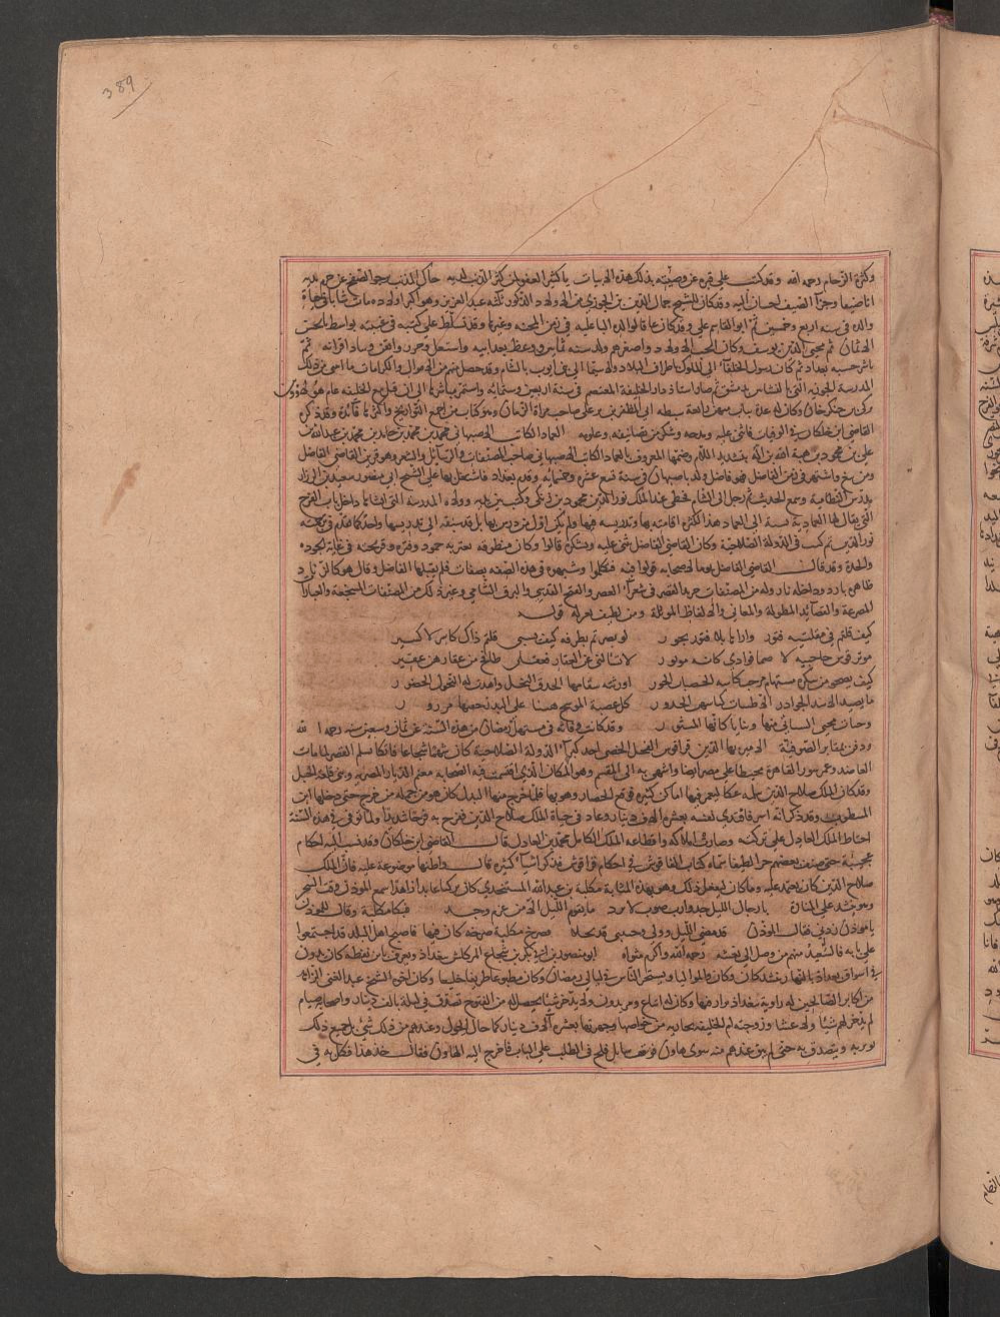 389
وكثرة الزحام رحمه الله وقد كتب على قبره عن وصيته بذلك هذه الابيات يا كثير العفو لمن كثر الذنب لديه جاك المذنب يرجو الصفح عن جرم يديه
انا ضيف وجزآ الضيف احسان اليه وقد كان للشيخ جمال الدين بن الجوزي من الاولاد الذكور ثلثة عبد العزيز وهو اكبر اولاده مات شابا في حياة
والده في سنه اربع وخمسين ثم ابو القاسم علي وقد كان عاقا لوالده البا عليه في زمن المحنه وغيرها وقد تسلط على كتبه في غيبته بواسط
الاثمان ثم محيي الدين يوسف وكان انجب الاولاد واصغرهم ولد سنه ثمانين ووعظ بعد ابيه واشتغل وحرر واتقن وساد اقرانه ثم
باشر حسبه بغداد ثم كان رسول الخلفآ الى الملوك باطراف البلاد ولا سيما الى بني ايوب بالشام وقد حصل منهم من الاموال والكرامات ما
المدرسة الجوزيه التي بالنشابين بدمشق ثم صار استاذ دار الخليفة المستعصم في سنة اربعين وستمائه واستمر مباشرها الى ان قتل مع الخليفه عام هولاكو
بن جنكزخان وكان لابي الفرج عدة بنات منهن رابعة سبطه ابي المظفر بن صاحب مرآة الزمان وهو كتاب من اجمع التواريخ واكثرها فائدة وقد ذكره
القاضي ابن خلكان في الوفيات فاثنى عليه ومدحه وشكر من تصانيفه وعلومه العماد الكاتب الاصبهاني محمد بن محمد بن حامد بن محمد بن عبد الله بن
علي بن محمود بن هبة الله بن اله بتشديد اللام وضمها المعروف بالعماد الكاتب الاصبهاني صاحب المصنفات والرسائل والشعر وهو قرين القاضي الفاضل
ومن نبغ واشتهر في زمن الفاضل فهو فاضل ولد باصبهان في سنة تسع عشره وخمسمائه وقدم بغداد فاشتغل بها على الشيخ ابي منصور سعيد بن الرزاز
مدرس النظاميه وسمع الحديث ثم رحل الى الشام فحظي عند الملك نور الدين محمود بن زنكي وكتب بين يديه وولاه المدرسة التي انشاها داخل باب الفرج
التي يقال لها العماديه نسبة الى العماد هذا لكثره اقامته بها وتدريسه فيها ولم يكن اول من درس بها بل قد سبقه الى تدريسها واحد كما تقدم في ترجمة
نور الدين ثم كتب في الدولة الصلاحيه وكان القاضي الفاضل يثني عليه ويشكره قالوا وكان منطوقه يعتريه جمود وفتره وقريحته في غاية الجوده
والحدة وقد قال القاضي الفاضل يوما لاصحابه قولوا فيه فتكلموا وشبهوه في هذه الصفه بصفات فلم يقبلها الفاضل وقال هو كالزناد
ظاهره بارد وداخله نار وله من المصنفات جريدة القصر في شعرآ العصر والفتح القدسي والبرق الشامي وغير ذلك من المصنفات المسجعة والعبارات
المصرعة والقصائد المطوله والمعاني والالفاظ الموئلة ومن لطيف تغزله قوله
كيف قلتم في مقلتيه فتور واراها بلا فتور تجور لو بصرتم بطرفه كيف يسبي قلتم ذاك كاسر لا كسير
موتر قوس حاجبيه لا صما فوادي كانه موتور لا تسالني عن العقار فعقلي طافح من عقارهن عقير
كيف يصحو من سكره مستهام مزجت كاسه الحسان الحور اورثته سقامها الحدق النجل واهدت له النحول الخصور
ما يصيد الاسد الجوادر الا ظبيات كناسهن الخدور كل غصنية الموشح هيفا على البدر جيبها مزرور
وجنات تجني الشقايق منها وثنايا كانها المنثور وقد كانت وفاته في مستهل رمضان من هذه السنة عن ثمان وسبعين سنه رحمه الله
ودفن بمقابر الصوفية الامير بها الدين قراقوش الفحل الخصي احد كبرآ الدولة الصلاحية كان شهما شجاعا فاتكا تسلم القصر لما مات
العاضد وعمر سور القاهرة محيطا على مصر ايضا وانتهى به الى المقسم وهو المكان الذي اقتسمت فيه الصحابه مغنم الديار المصريه وبنى قلعة الجبل
وقد كان الملك صلاح الدين سلمه عكا ليعمر فيها اماكن كثيره فوقع الحصار وهو بها فلما خرج منها البدل كان هو من جملة من خرج حتى دخلها ابن
المشطوب وقد ذكر انه اسر فافتدى نفسه بعشرة الاف دينار وعاد في حياة الملك صلاح الدين ففرح به فرحا شديدا ولما توفي في هذه السنة
احتاط الملك العادل على تركته وصارت املاكه واقطاعه للملك الكامل محمد بن العادل قال القاضي ابن خلكان وقد نسب اليه احكام
عجيبة حتى صنف بعضهم جزا لطيفا سماه كتاب الفاشوش في احكام قراقوش فذكر اشيآ كثيره قال واظنها موضوعة عليه فان الملك
صلاح الدين كان يعتمد عليه وما كان ليفعل ذلك وهو بهذه المثابة مكلبة بن عبد الله المستنجدي كان تركيا عابدا زاهدا سمع الموذن وقت السحر
وهو ينشد على المنارة يا رجال الليل جدوا رب صوت لا يرد ما يقوم الليل الا من عزم وجد فبكا مكلبة وقال للموذن
يا موذن زدني فقال الموذن قد مضى الليل وولى وحبيبي قد تخلا فصرخ مكلبة صرخه كان فيها فاصبح اهل البلد قد اجتمعوا
على بابه فالسعيد منهم من وصل الى نعشه رحمه الله واكرم مثواه ابو منصور بن ابي بكر بن شجاع المزكلش ببغداد ويعرف بابن نقطه كان يدور
في اسواق بغداد بالنهار ينشد كان وكان والمواليا ويسحر الناس في ليالي رمضان وكان مطبوعا ظريفا خليعا وكان اخوه الشيخ عبد الغني الزاهد
من اكابر الصالحين له زاوية ببغداد يزار فيها وكان له اتباع ومريدون ولا يدخر شيئا يحصل له من الفتوح تصدق في ليلة بالف دينار واصحابه صيام
لم يدخر لهم شيئا ولا عشا وزوجته ام الخليفه بجاريه من خواصها وجهزتها بعشره آلاف دينار فما حال الحول وعندهم من ذلك شي بل جميع ذلك
يوثر به ويتصدق به حتى لم يبق عندهم منه سوى هاون فوقف سايل فالح في الطلب على الباب فاخرج اليه الهاون فقال خذ هذا فكل به في